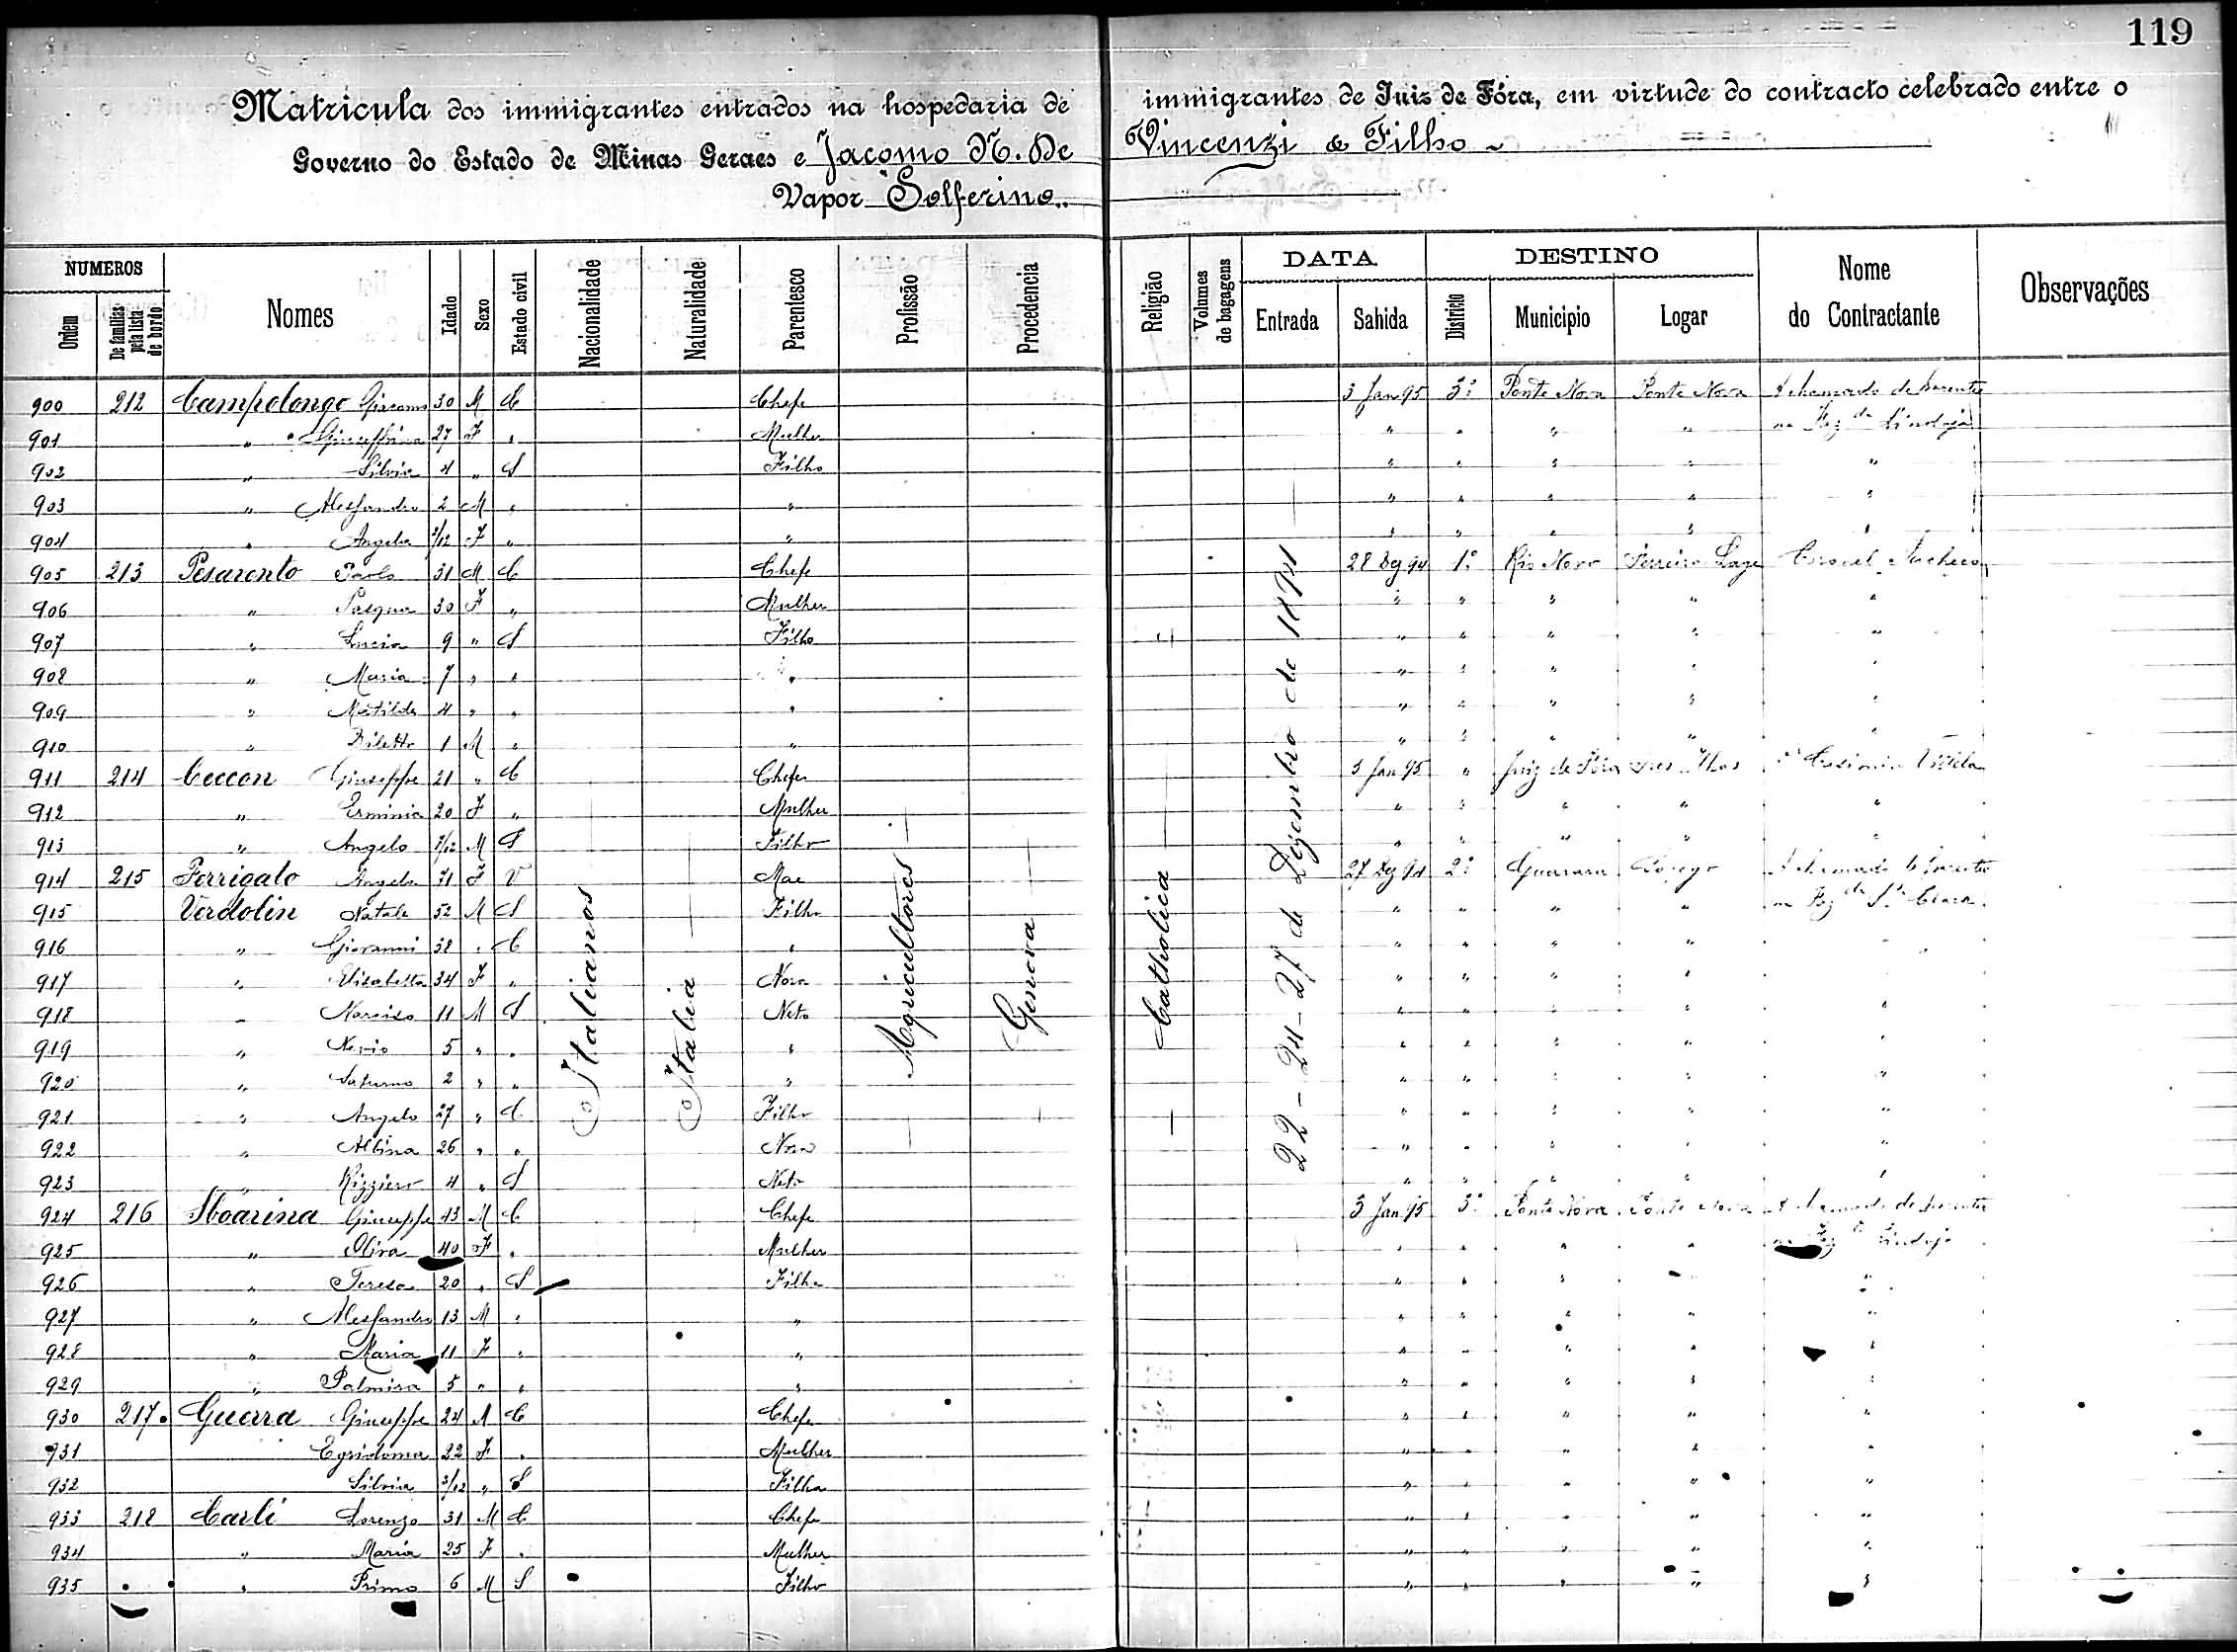 119
Matricula dos immigrantes entrados na hospedaria de immigrantes de Juiz de Fóra, em virtude do contracto celebrado entre o
Governo do Estado de Minas Geraes e Jacomo N. De Vincenzi & Filho
Vapor "Solferino"
NUMEROS DATA DESTINO
Ordem De familias pela lista de bordo Nomes Idade Sexo Estado civil Nacionalidade Naturalidade Parentesco Profissão Procedencia Religião Volumes de bagagens Entrada Sahida Districto Municipio Logar Nome do Contractante Observações
Italianos Italia Agricultores Genova Catholica 22-24-27 de Dezembro de 1894
900 212 Campolongo Giacomo 30 M C Chefe 3 Jan 95 3º Ponte Nova Ponte Nova A chamado de parentes
901 " Giuseffina 27 F " Mulher " " " " na Fazda
902 " Silvia 4 " S Filho " " " " "
903 " Alessandro 2 M " " " " " " "
904 " Angela /12 F " " " " " " "
905 213 Pesarento Paolo 31 M C Chefe 28 Dez 94 1º Rio Novo Ferreira Lage Coronel Pacheco
906 " Pasqua 30 F " Mulher " " " " "
907 " Lucia 9 " S Filho " " " " "
908 " Maria 7 " " " " " " " "
909 " Matilde 4 " " " " " " " "
910 " Diletto 1 M " " " " " " "
911 214 Ceccon Giuseppe 21 " C Chefe 3 Jan 95 " Juiz de Fóra Tres Ilhas
912 " Erminia 20 F " Mulher " " " " "
913 " Angelo /12 M S Filho " " " " "
914 215 Perrigalo Angela 71 F V Mae 27 Dez 94 2º Guarara A chamado de parentes
915 Verdolin Natale 52 M S Filho " " " " na Fazda Sta Clara
916 " Giovanni 38 " C " " " " "
917 " Elisabetta 34 F " Nora " " " "
918 " Narciso 11 M S Neto " " " " "
919 " 5 " " " " " " " "
920 " Saturno 2 " " " " " " " "
921 " Angelo 27 " C Filho " " " " "
922 " Albina 26 " " Nora " " " " "
923 " Rizziero 4 " S Neto " " " " "
924 216 Giuseppe 43 M C Chefe 3 Jan 95 3º Ponte Nova Ponte Nova A chamado de parentes
925 " Oliva 40 F " Mulher " " " "
926 " Teresa 20 " S Filha " " " " "
927 " Alessandro 13 M " " " " " " "
928 " Maria 11 F " " " " " " "
929 " Palmira 5 " " " " " " " "
930 217 Guerra Giuseppe 24 M C Chefe " " " " "
931 22 F " Mulher " " " " "
932 Silvia 3/12 " S Filha " " " " "
933 218 Carli Lorenzo 31 M C Chefe " " " " "
934 " Maria 25 F " Mulher " " " " "
935 " Primo 6 M S Filho " " " " "